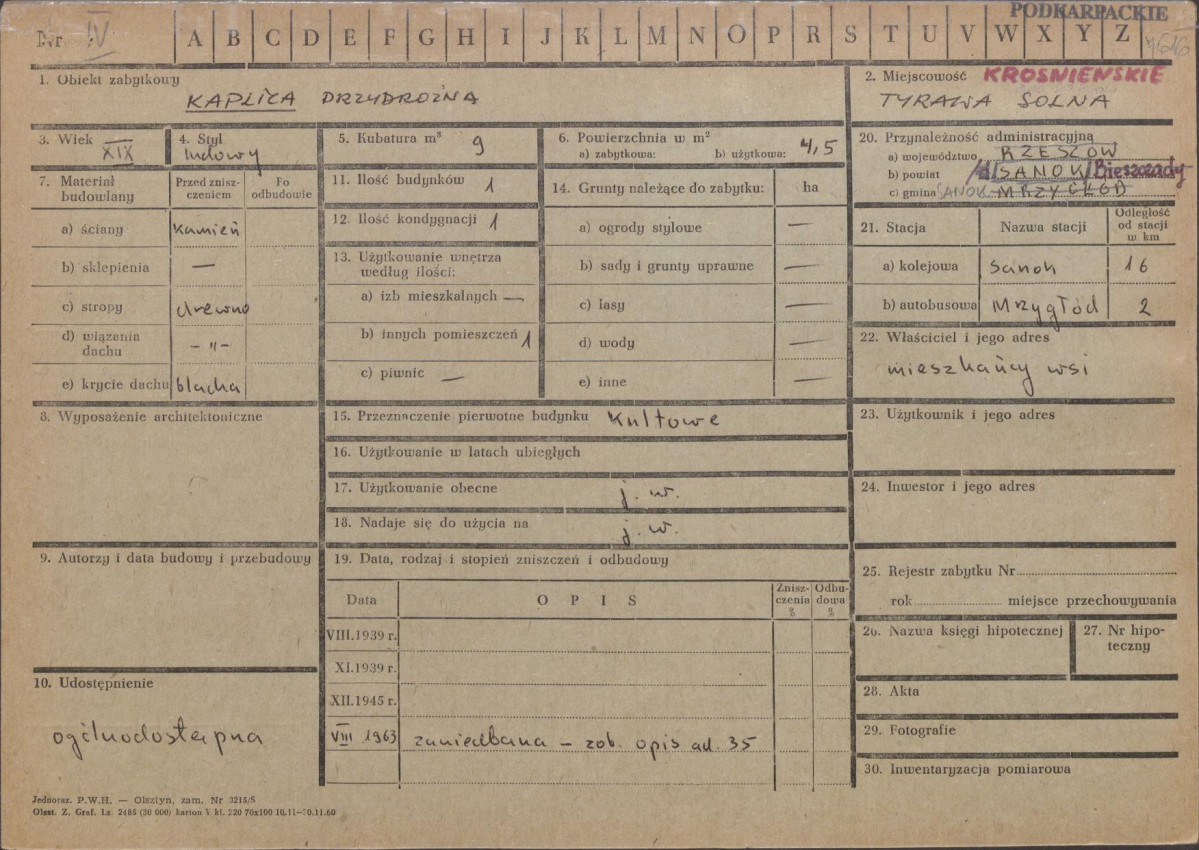 PODKARPACKIE
Nr IV A B C D E F G H I J K L M N O P R S T U V W X Y Z
1. Obiekt zabytkowy
KAPLICA PRZYDROŻNA
2. Miejscowość KROŚNIEŃSKIE
TYRAWA SOLNA
3. Wiek
XIX
4. Styl
ludowy
5. Kubatura m³ 9
6. Powierzchnia w m²
a) zabytkowa: b) użytkowa: 4,5
20. Przynależność administracyjną
a) województwo RZESZÓW
b) powiat SANOK Bieszczady
c) gmina SANOK MRZYGŁÓD
7. Materiał budowlany
Przed znisz-
czeniem
Po
odbudowie
a) ściany kamień
b) sklepienia —
c) stropy drewno
d) wiązania
dachu – „ –
e) krycie dachu blacha
11. Ilość budynków 1
12. Ilość kondygnacji 1
13. Użytkowanie wnętrza
według ilości:
a) izb mieszkalnych —
b) innych pomieszczeń 1
c) piwnic —
14. Grunty należące do zabytku: ha
a) ogrody stylowe —
b) sady i grunty uprawne —
c) lasy —
d) wody —
e) inne —
21. Stacja Nazwa stacji
Odległość
od stacji
w km
a) kolejowa Sanok 16
b) autobusowa Mrzygłód 2
22. Właściciel i jego adres
mieszkańcy wsi
8. Wyposażenie architektoniczne
15. Przeznaczenie pierwotne budynku kultowe
16. Użytkowanie w latach ubiegłych
17. Użytkowanie obecne j. w.
18. Nadaje się do użycia na j. w.
23. Użytkownik i jego adres
24. Inwestor i jego adres
9. Autorzy i data budowy i przebudowy
19. Data, rodzaj i stopień zniszczeń i odbudowy
Data O P I S
Znisz-
czenia
%
Odbu-
dowa
%
VIII.1939 r.
XI.1939 r.
XII.1945 r.
VIII 1963 zaniedbana – zob. opis ad. 35
25. Rejestr zabytku Nr
rok miejsce przechowywania
26. Nazwa księgi hipotecznej
27. Nr hipo-
teczny
28. Akta
29. Fotografie
30. Inwentaryzacja pomiarowa
10. Udostępnienie
ogólnodostępna
Jednoraz. P.W.H. — Olsztyn, zam. Nr 3215/S
Olszt. Z. Graf. Lz. 2486 (30 000) karton V kl. 220 70x100 10.11—30.11.60